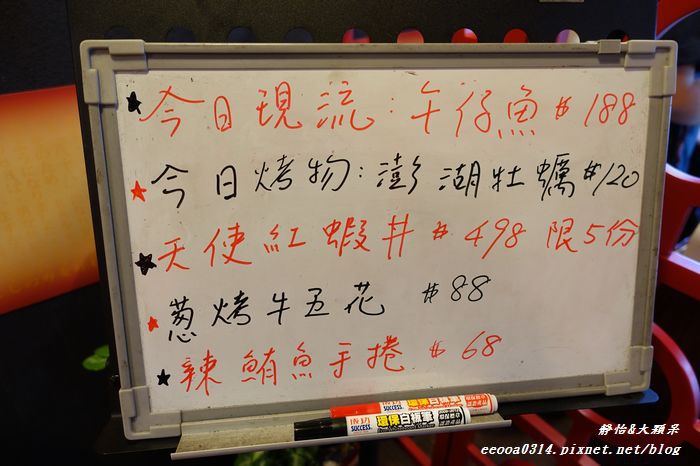 ★今日現流:午仔魚 #188
★今日烤物:澎湖牡蠣 #120
★天使紅蝦丼 #498 限5份
★葱烤牛五花 #88
★辣鮪魚手捲 #68
成功 SUCCESS 環保白板筆
成功 SUCCESS 環保白板筆
靜怡&大顆呆
eeooa0314.pixnet.net/blog